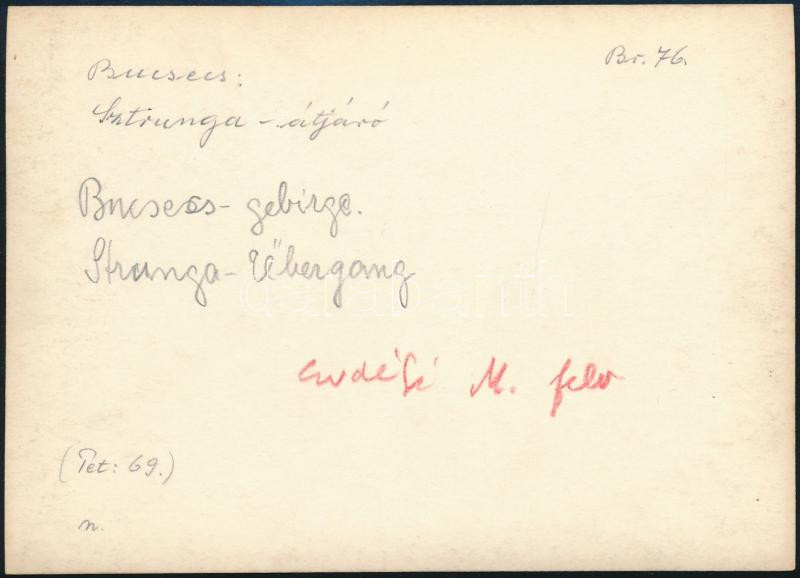 Br. 76.
Bucsecs:
Sztrunga - átjáró
Bucsecs - gebirge.
Strunga - Übergang
darabanth
Erdélyi M. felv
(Tet: 69.)
n.